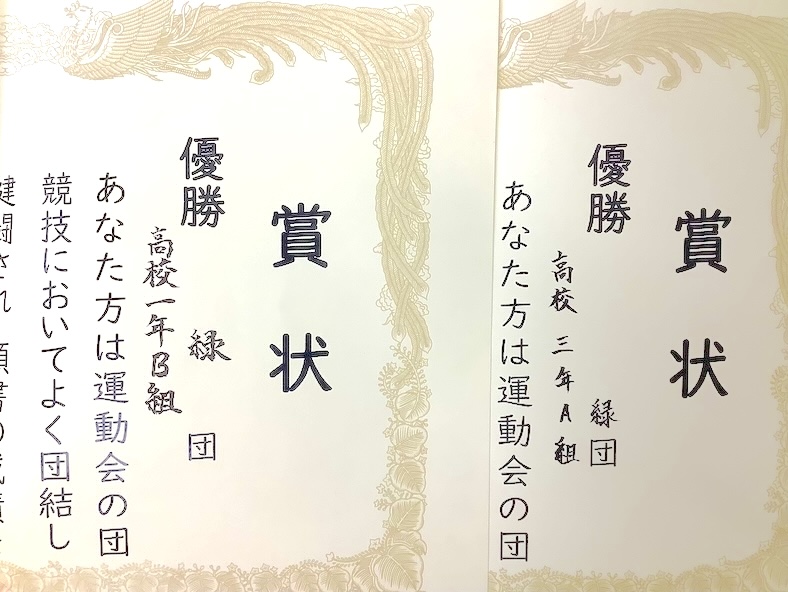 賞状
優勝 緑団
高校三年A組
あなた方は運動会の団
賞状
優勝 緑団
高校一年B組
あなた方は運動会の団
競技においてよく団結し
健闘され頭書の成績